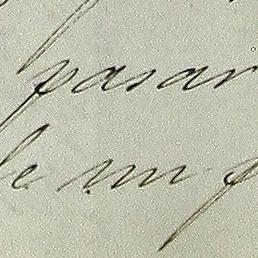 pasar
le un p